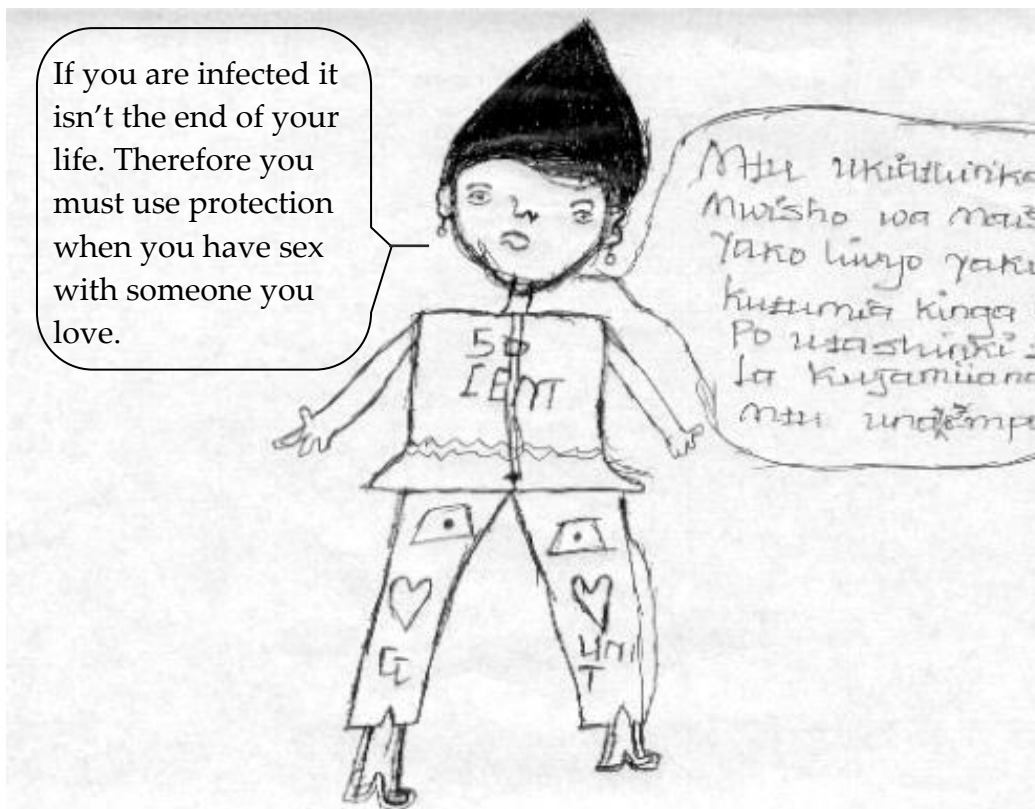 If you are infected it
isn’t the end of your
life. Therefore you
must use protection
when you have sex
with someone you
love.
Mtu
Mwisho wa Mais
Yako hivyo yaku
kutumia kinga
Po utashiriki
la kujamiiana
Mtu
50
IENT